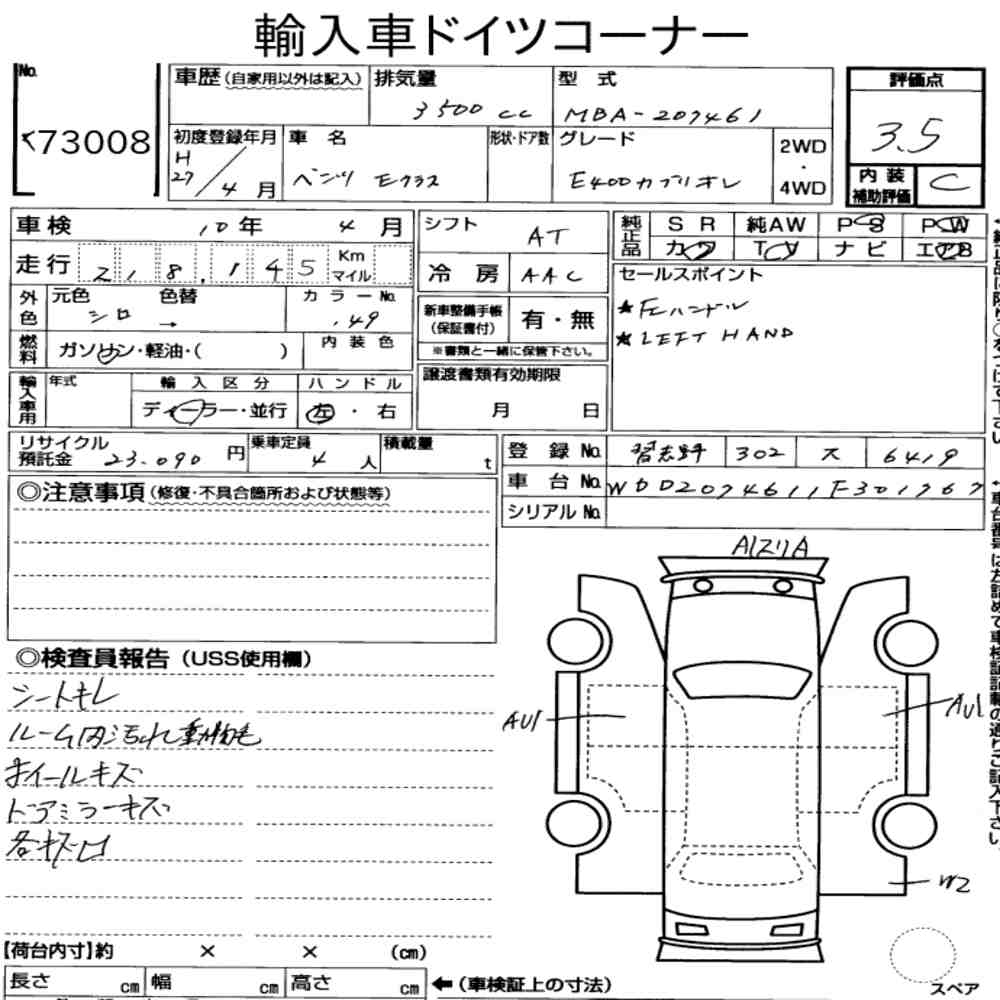 輸入車ドイツコーナー
No. 73008
車歴(自家用以外は記入) 排気量 3500 cc 型式 MBA-207461 評価点 3.5
初度登録年月 H27/4月 車名 ベンツ Eクラス 形状・ドア数 グレード E400カブリオレ 2WD・4WD 内装補助評価 C
車検 10年 4月 シフト AT 純正品 SR 純AW PS PW
走行 218,145 Km マイル 冷房 AAC カワ TV ナビ エアB
外色 元色 シロ 色替 → カラーNo. 149 新車整備手帳(保証書付) 有・無 セールスポイント
★Fエハンドル
★LEFT HAND
燃料 ガソリン・軽油・( ) 内装色 ※書類と一緒に保管下さい。
輸入車用 年式 輸入区分 ディーラー・並行 ハンドル 左・右 譲渡書類有効期限 月 日
リサイクル預託金 23.090円 乗車定員 4人 積載量 t 登録No. 習志野 302 ス 6419
車台No. WDD2074611F301767
シリアルNo.
◎注意事項(修復・不具合箇所および状態等)
◎検査員報告(USS使用欄)
シートキレ
ルーム内汚れ動物毛
ホイールキズ
ドアミラーキズ
各キズ凹
A1スリA
AU1 AU1
W2
スペア
【荷台内寸】約 × × (cm)
長さ cm 幅 cm 高さ cm ←(車検証上の寸法)
↑車台番号は左詰めで車検証記載の通りご記入下さい。